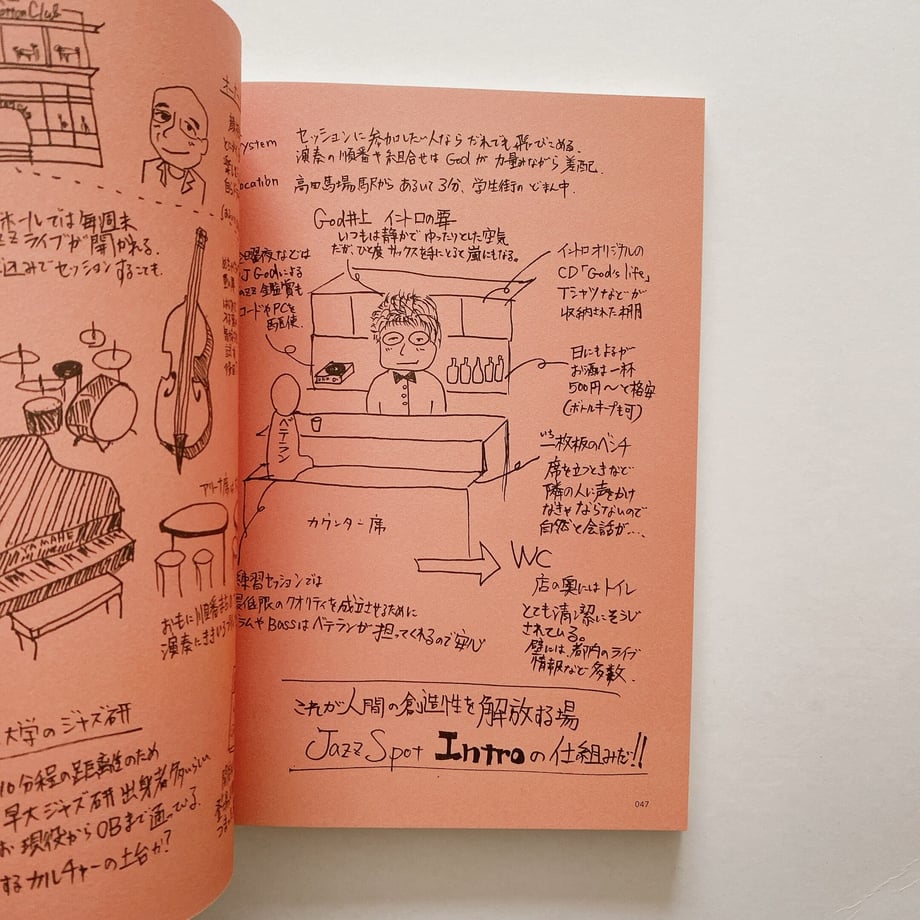 Cotton Club
ホールでは毎週末
ZZ ライブが開かれる。
込みでセッションすることも。
YAMAHA
アリーナ席
おもに順番まちの
大学のジャズ研
10分程の距離性のため
早大ジャズ研出身者多いらしい
現役からOBまで通ってる。
するカルチャーの土台か？
system
セッションに参加したい人ならだれでも飛びこめる。
演奏の順番や組合せは God が力量みながら差配。
ocation
高田馬場駅からあるいて3分、学生街のどまん中。
God井上 イントロの要
いつもは静かでゆったりとした空気
だが、ひと度サックスを手にとると嵐にもなる。
曜夜などは
J Godによる
azz 鑑賞も
コードやPCを
駆使。
イントロオリジナルの
CD「God's life」
Tシャツなどが
収納された棚
日にもよるが
お酒は一杯
500円〜と格安
(ボトルキープも可)
ベテラン
いち
一枚板のベンチ
席を立つときなど
隣の人に声をかけ
なきゃならないので
自然と会話が…、
カウンター席
WC
店の奥にはトイレ
とても清潔にそうじ
されている。
壁には、都内のライブ
情報など多数。
練習セッションでは
最低限のクオリティを成立させるために
ラムやBassはベテランが担ってくれるので安心
これが人間の創造性を解放する場
Jazz Spot Introの仕組みだ!!
047